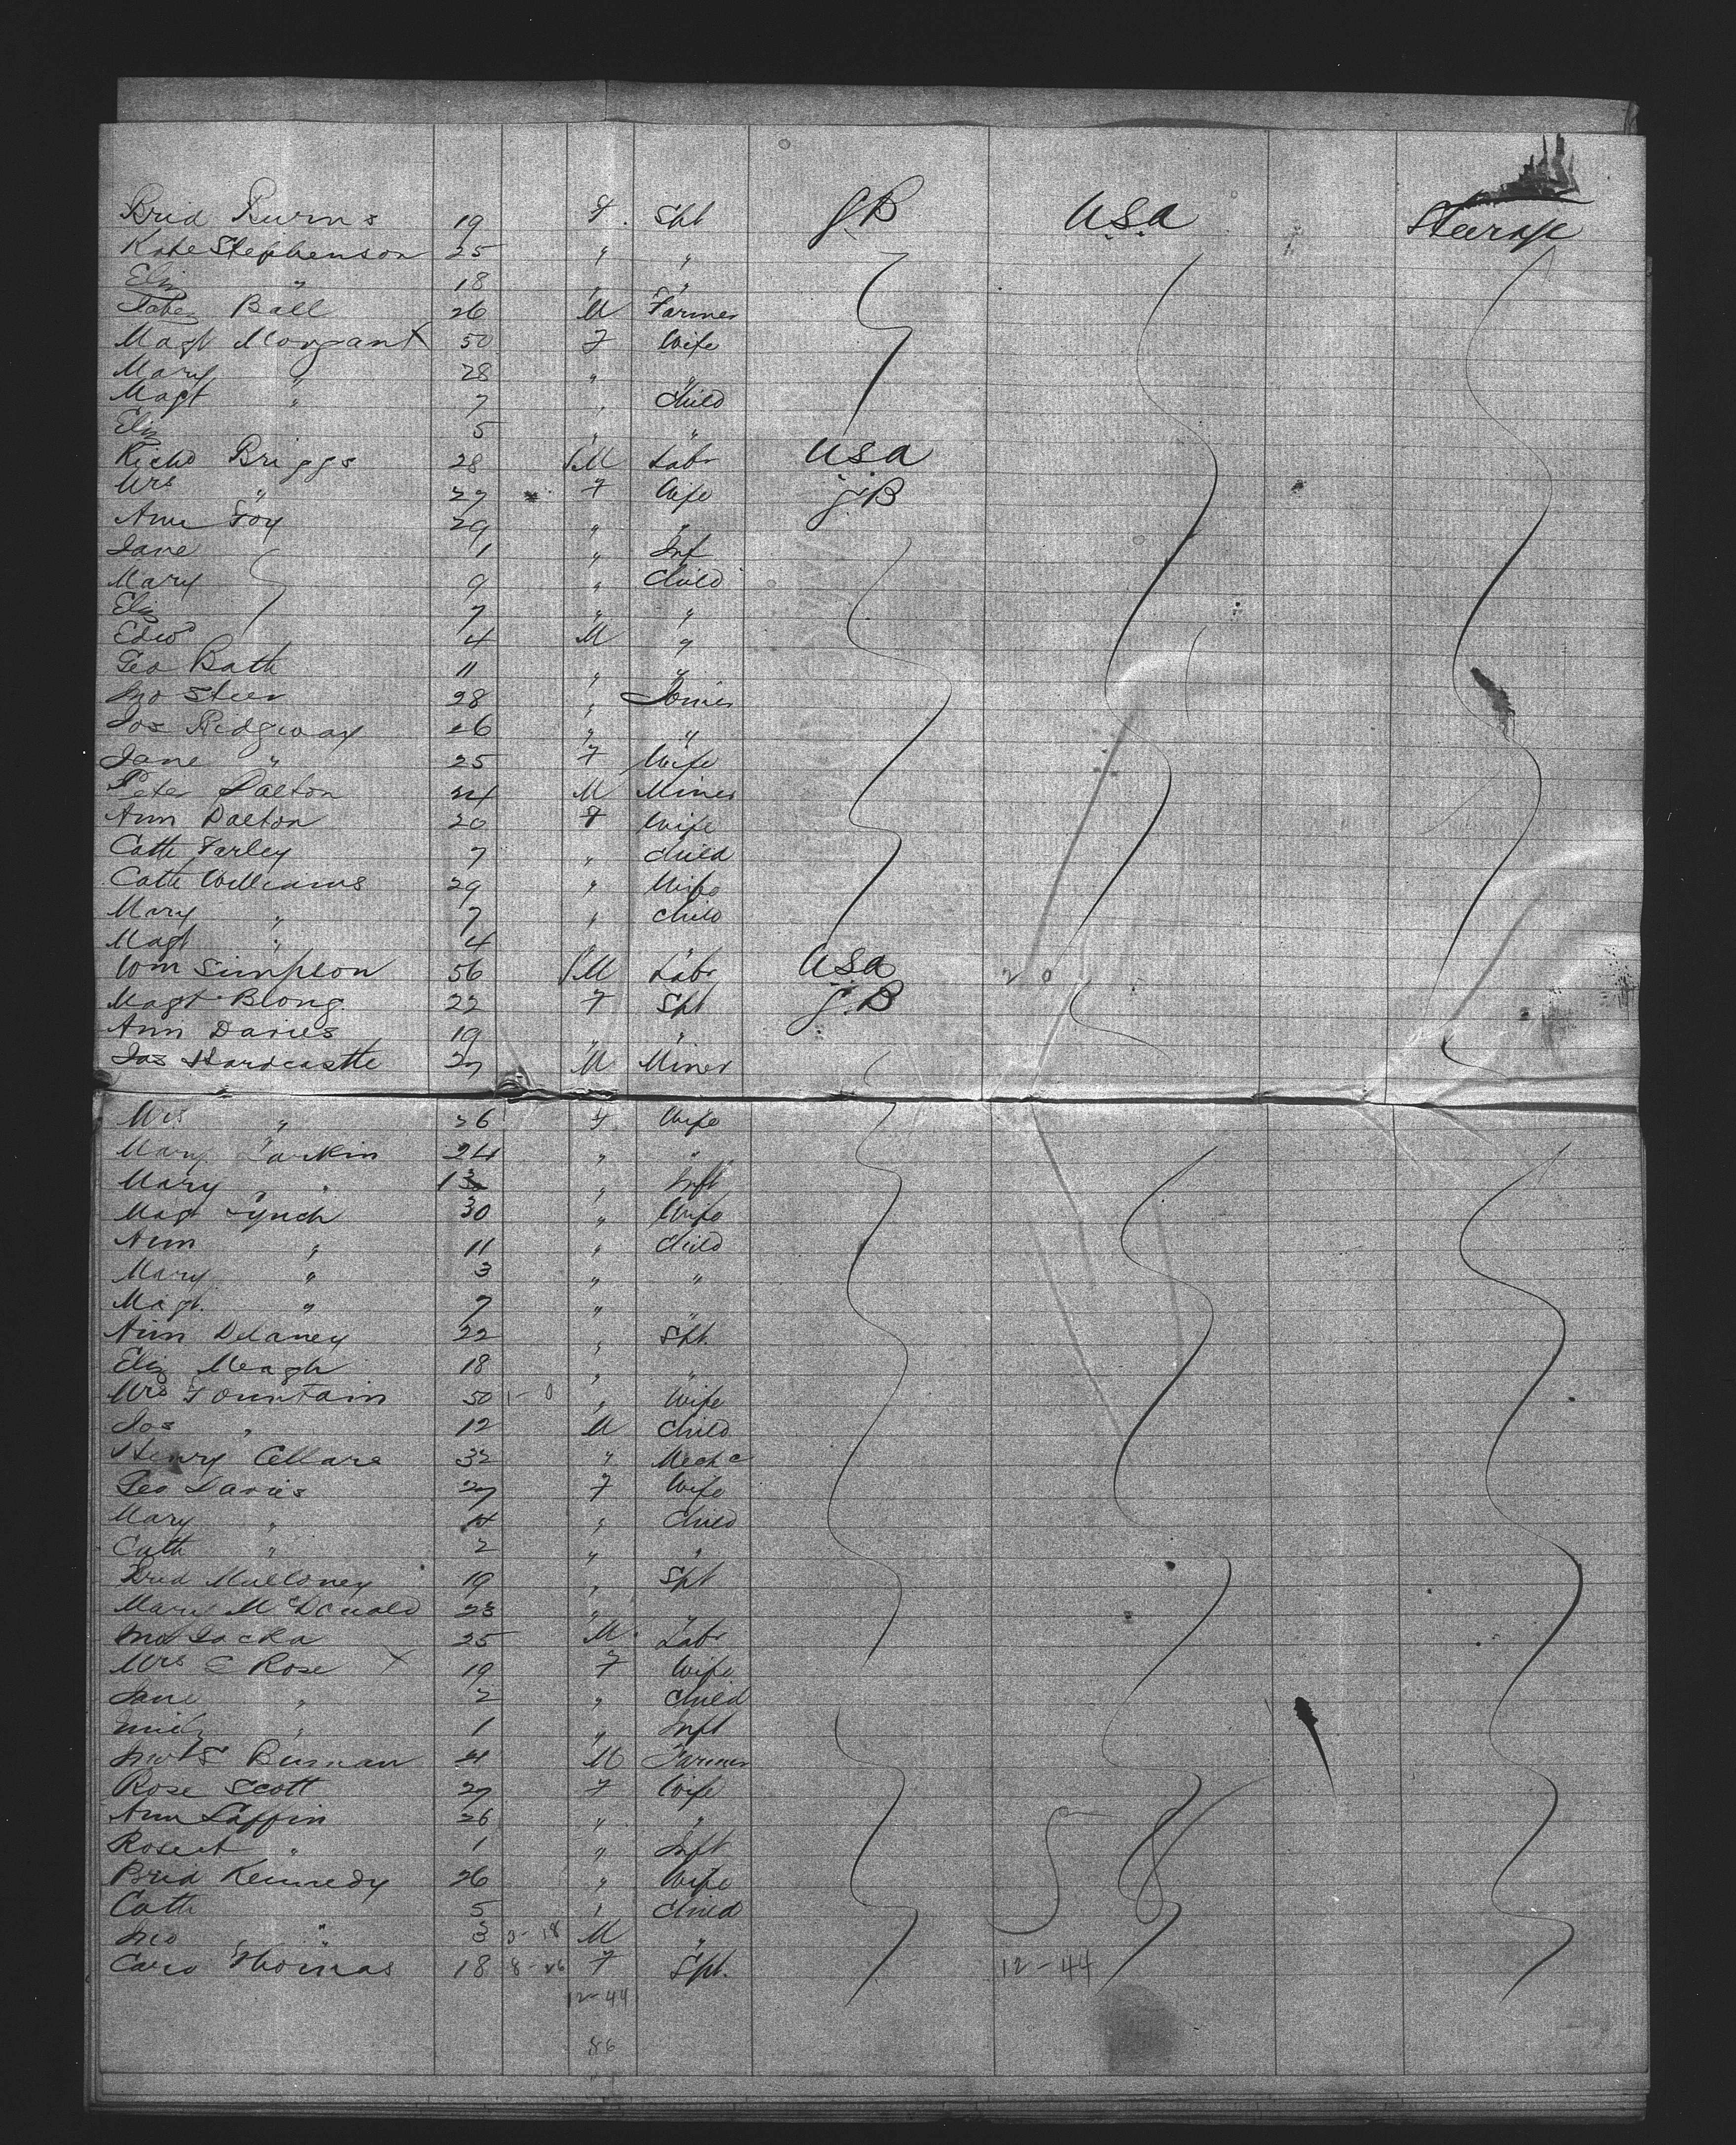 Brid Burns 19 F. Spt GB USA Steerage
Kate Stephenson 25 " "
Eliz " 18 " "
Jabez Ball 26 M Farmer
Magt Morgan X 50 F Wife
Mary " 28 " "
Magt " 7 " Child
Eliz 5 " "
Richd Briggs 28 M Labr USA
Mrs " 27 F Wife GB
Ann Foy 29 " "
Jane 1 " Inf
Mary 9 " Child
Eliz 7 " "
Edwd 4 M "
Geo Bath 11 " "
Jno Steer 28 " Joiner
Jos Ridgway 26 " "
Jane " 25 F Wife
Peter Dalton 24 M Miner
Ann Dalton 20 F Wife
Cath Farley 7 " Child
Cath Williams 29 " Wife
Mary " 7 " Child
Magt " 4 " "
Wm Simpson 56 M Labr USA 20
Magt Blong 22 F Spt GB
Ann Davies 19 " "
Jas Hardcastle 27 M Miner
Mrs " 26 F Wife
Mary Larkin 24 " "
Mary " " Inft
Magt Lynch 30 " Wife
Ann " 11 " Child
Mary " 3 " "
Magt " 7 " "
Ann Delaney 22 " Spt.
Eliz Meagh 18 " "
Mrs Fountain 50 1-0 " Wife
Jos " 12 M Child
Henry 32 " Mechc
Geo Davies 27 F Wife
Mary " 4 " Child
Cath " 2 " "
Brid Mulloney 19 " Spt
Mary McDonald 23 " "
Jno Jacka 25 M. Labr
Mrs E Rose X 19 F Wife
Jane " 2 " Child
Emily " 1 " Inft
Burman M Farmer
Rose Scott 27 F Wife
Ann Laffin 26 " "
Robert " 1 " Inft
Brid Kennedy 26 " Wife
Cath 5 " Child
Jno " 3 M "
Caro Thomas 18 F Spt. 12-44
12-44
86